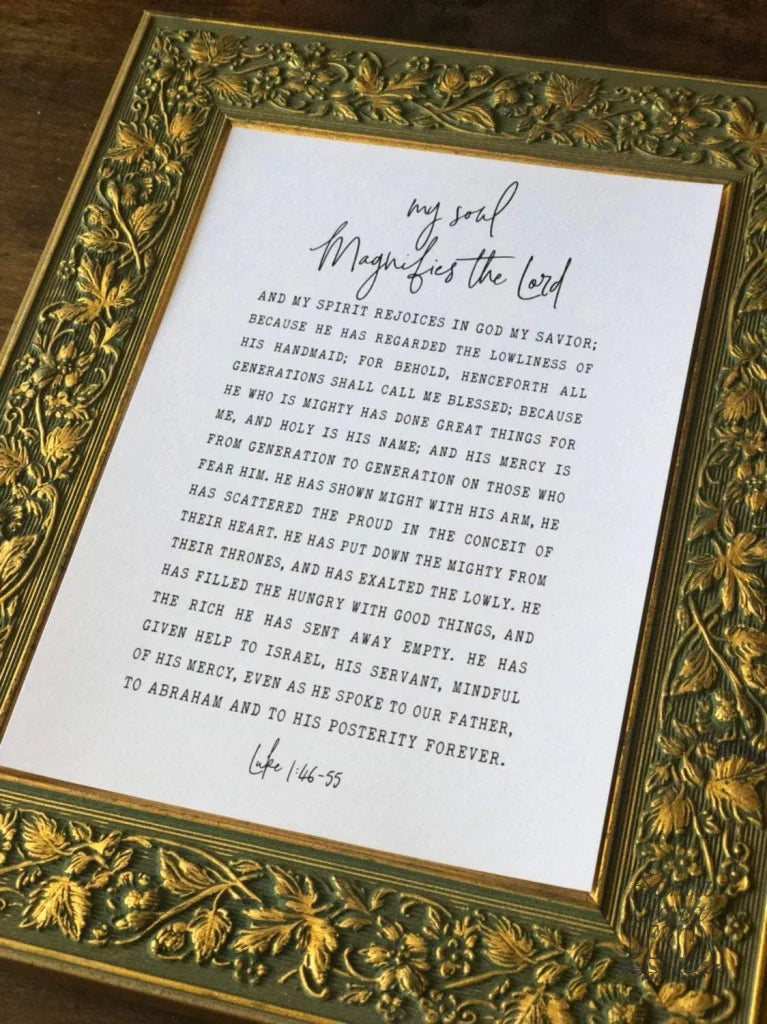 my soul
Magnifies the Lord
AND MY SPIRIT REJOICES IN GOD MY SAVIOR;
BECAUSE HE HAS REGARDED THE LOWLINESS OF
HIS HANDMAID; FOR BEHOLD, HENCEFORTH ALL
GENERATIONS SHALL CALL ME BLESSED; BECAUSE
HE WHO IS MIGHTY HAS DONE GREAT THINGS FOR
ME, AND HOLY IS HIS NAME; AND HIS MERCY IS
FROM GENERATION TO GENERATION ON THOSE WHO
FEAR HIM. HE HAS SHOWN MIGHT WITH HIS ARM, HE
HAS SCATTERED THE PROUD IN THE CONCEIT OF
THEIR HEART. HE HAS PUT DOWN THE MIGHTY FROM
THEIR THRONES, AND HAS EXALTED THE LOWLY. HE
HAS FILLED THE HUNGRY WITH GOOD THINGS, AND
THE RICH HE HAS SENT AWAY EMPTY. HE HAS
GIVEN HELP TO ISRAEL, HIS SERVANT, MINDFUL
OF HIS MERCY, EVEN AS HE SPOKE TO OUR FATHER,
TO ABRAHAM AND TO HIS POSTERITY FOREVER.
Luke 1:46-55